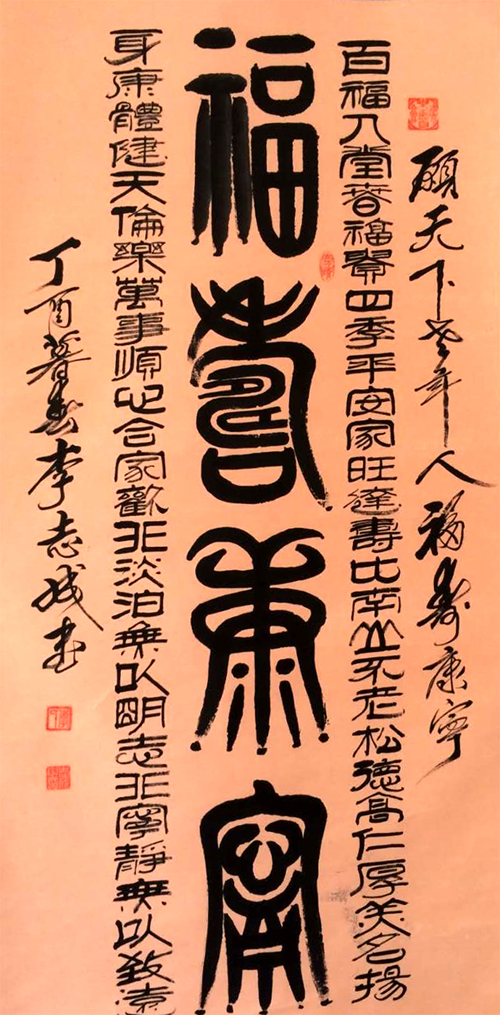 願天下老年人福壽康寧
百福入堂春福四季平安家旺達壽比南山不老松德高仁厚美名揚
福壽康寧
身康體健天倫樂萬事順心合家歡非淡泊無以明志非寧靜無以致遠
丁酉暮春李志成書